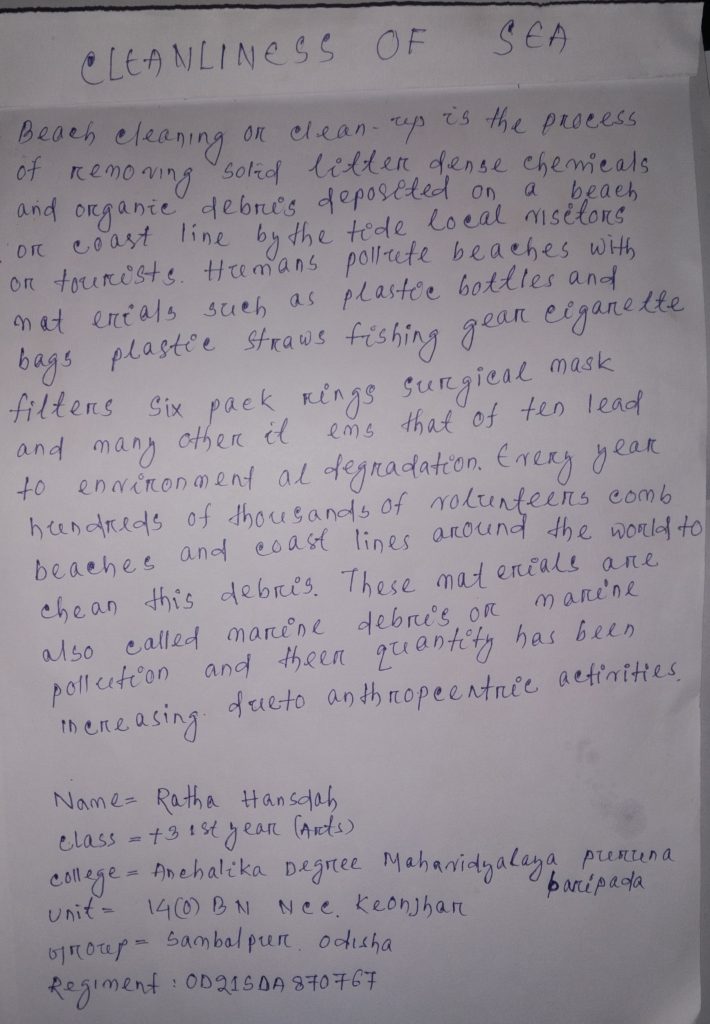 CLEANLINESS OF SEA
Beach cleaning or clean-up is the process
of removing solid litter dense chemicals
and organic debris deposited on a beach
or coast line by the tide local visitors
or tourists. Humans pollute beaches with
mat erials such as plastic bottles and
bags plastic straws fishing gear cigarette
filters six pack rings surgical mask
and many other it ems that of ten lead
to environment al degradation. Every year
hundreds of thousands of volunteers comb
beaches and coast lines around the world to
chean this debris. These mat erials are
also called marine debris or marine
pollution and their quantity has been
increasing dueto anthropcentric activities.
Name= Ratha Hansdah
class = +3 1st year (Arts)
college = Anchalika Degree Mahavidyalaya puruna
baripada
Unit = 14(O) BN Ncc. Keonjhar
Group = Sambalpur. odisha
Regiment : OD21SDA870767